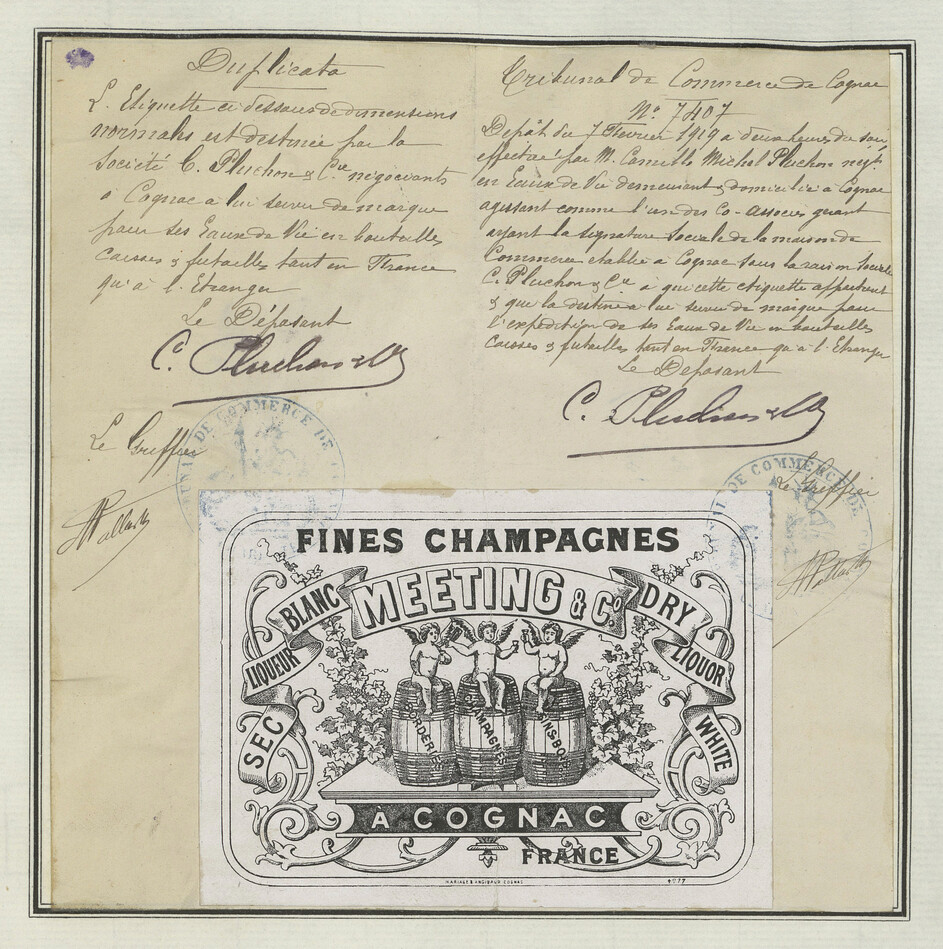 Duplicata
L'Etiquette ci dessous de dimensions
normales est destinée par la
Société C. Pluchon & Cie négociants
à Cognac a lui servir de marque
pour ses Eaux de Vie en bouteilles
caisses & futailles tant en France
qu'à l'Etranger
Le Déposant
C. Pluchon & Co
Le Greffier
Tribunal de Commerce de Cognac
No 7407
Dépôt du 7 Février 1919 a deux heures du soir
effectué par M. Camille Michel Pluchon négt
en Eaux de Vie demeurant & domicilié à Cognac
agissant comme l'un des Co-associés gérant
ayant la signature sociale de la maison de
Commerce établie à Cognac sous la raison sociale
C. Pluchon & Cie à qui cette etiquette appartient
& qui la destine a lui servir de marque pour
l'expédition de ses Eaux de Vie en bouteilles
caisses & futailles tant en France qu'à l'Etranger
Le Déposant
C. Pluchon & Co
Le Greffier
DE COMMERCE DE
DE COMMERCE DE
FINES CHAMPAGNES
MEETING & Co
BLANC
LIQUEUR
SEC
DRY
LIQUOR
WHITE
BORDERIES
CHAMPAGNES
FINS BOIS
À COGNAC
FRANCE